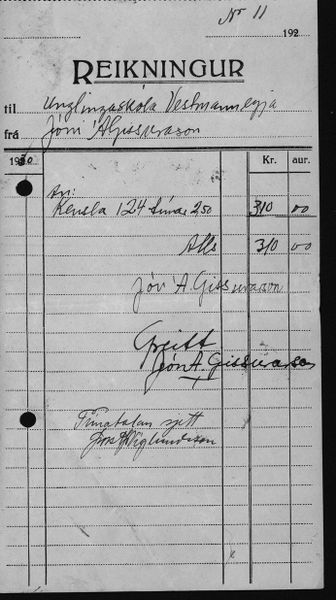 Nr 11
192
REIKNINGUR
til Unglingaskóla Vestmannaeyja
frá Jóni Á Gissurasson
1930 Kr. aur.
An:
Kensla 124 tíma 2.50 310 00
Alls 310 00
Jón Á. Gissurason
Greitt
Jón Á. Gissurason
Tímatalan rjett
Þorst Víglundsson